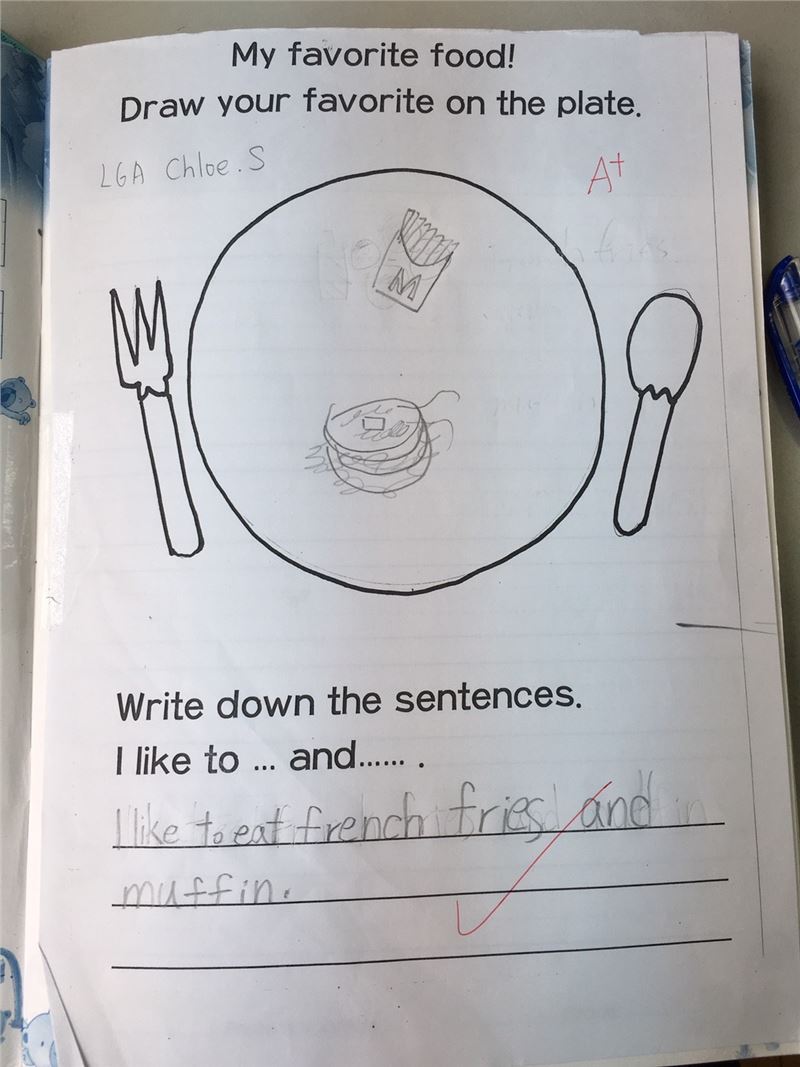 My favorite food!
Draw your favorite on the plate.
LGA Chloe.S
A+
M
Write down the sentences.
I like to ... and...... .
I like to eat french fries and
muffin.